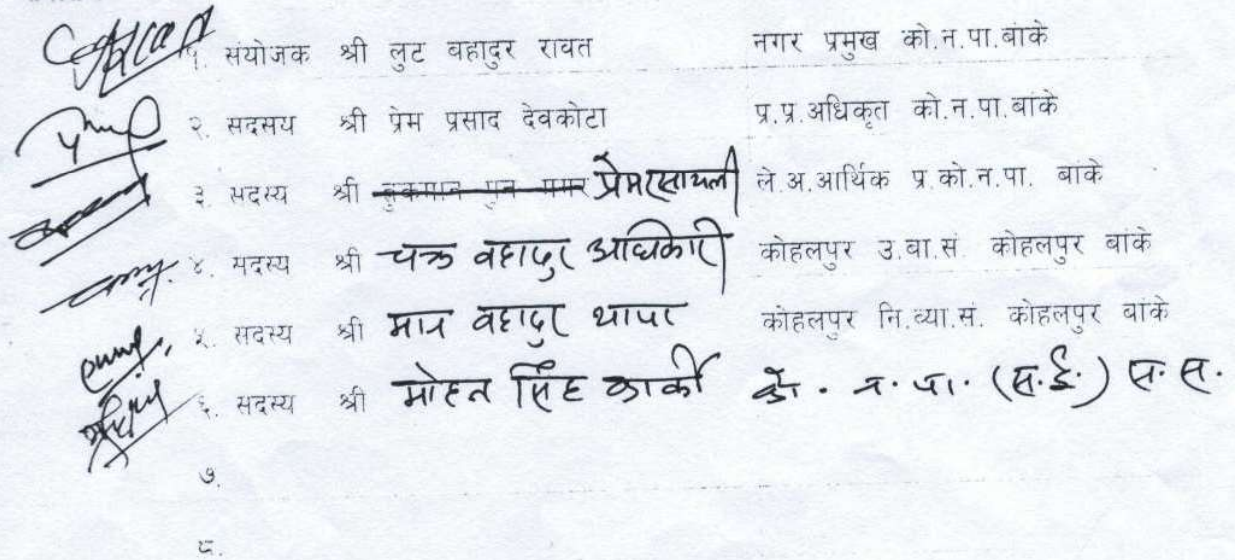 १. संयोजक श्री लुट बहादुर रावत नगर प्रमुख को.न.पा.बांके
२. सदसय श्री प्रेम प्रसाद देवकोटा प्र.प्र.अधिकृत को.न.पा.बांके
३. सदस्य श्री ले.अ.आर्थिक प्र.को.न.पा. बांके
४. सदस्य श्री चक्र वहादुर अधिकारी कोहलपुर उ.बा.सं. कोहलपुर बांके
५. सदस्य श्री मान वहादुर थापा कोहलपुर नि.व्या.सं. कोहलपुर बांके
६. सदस्य श्री मोहन सिंह कार्की को. न. पा. (स.ई.) स. स.
७.
८.